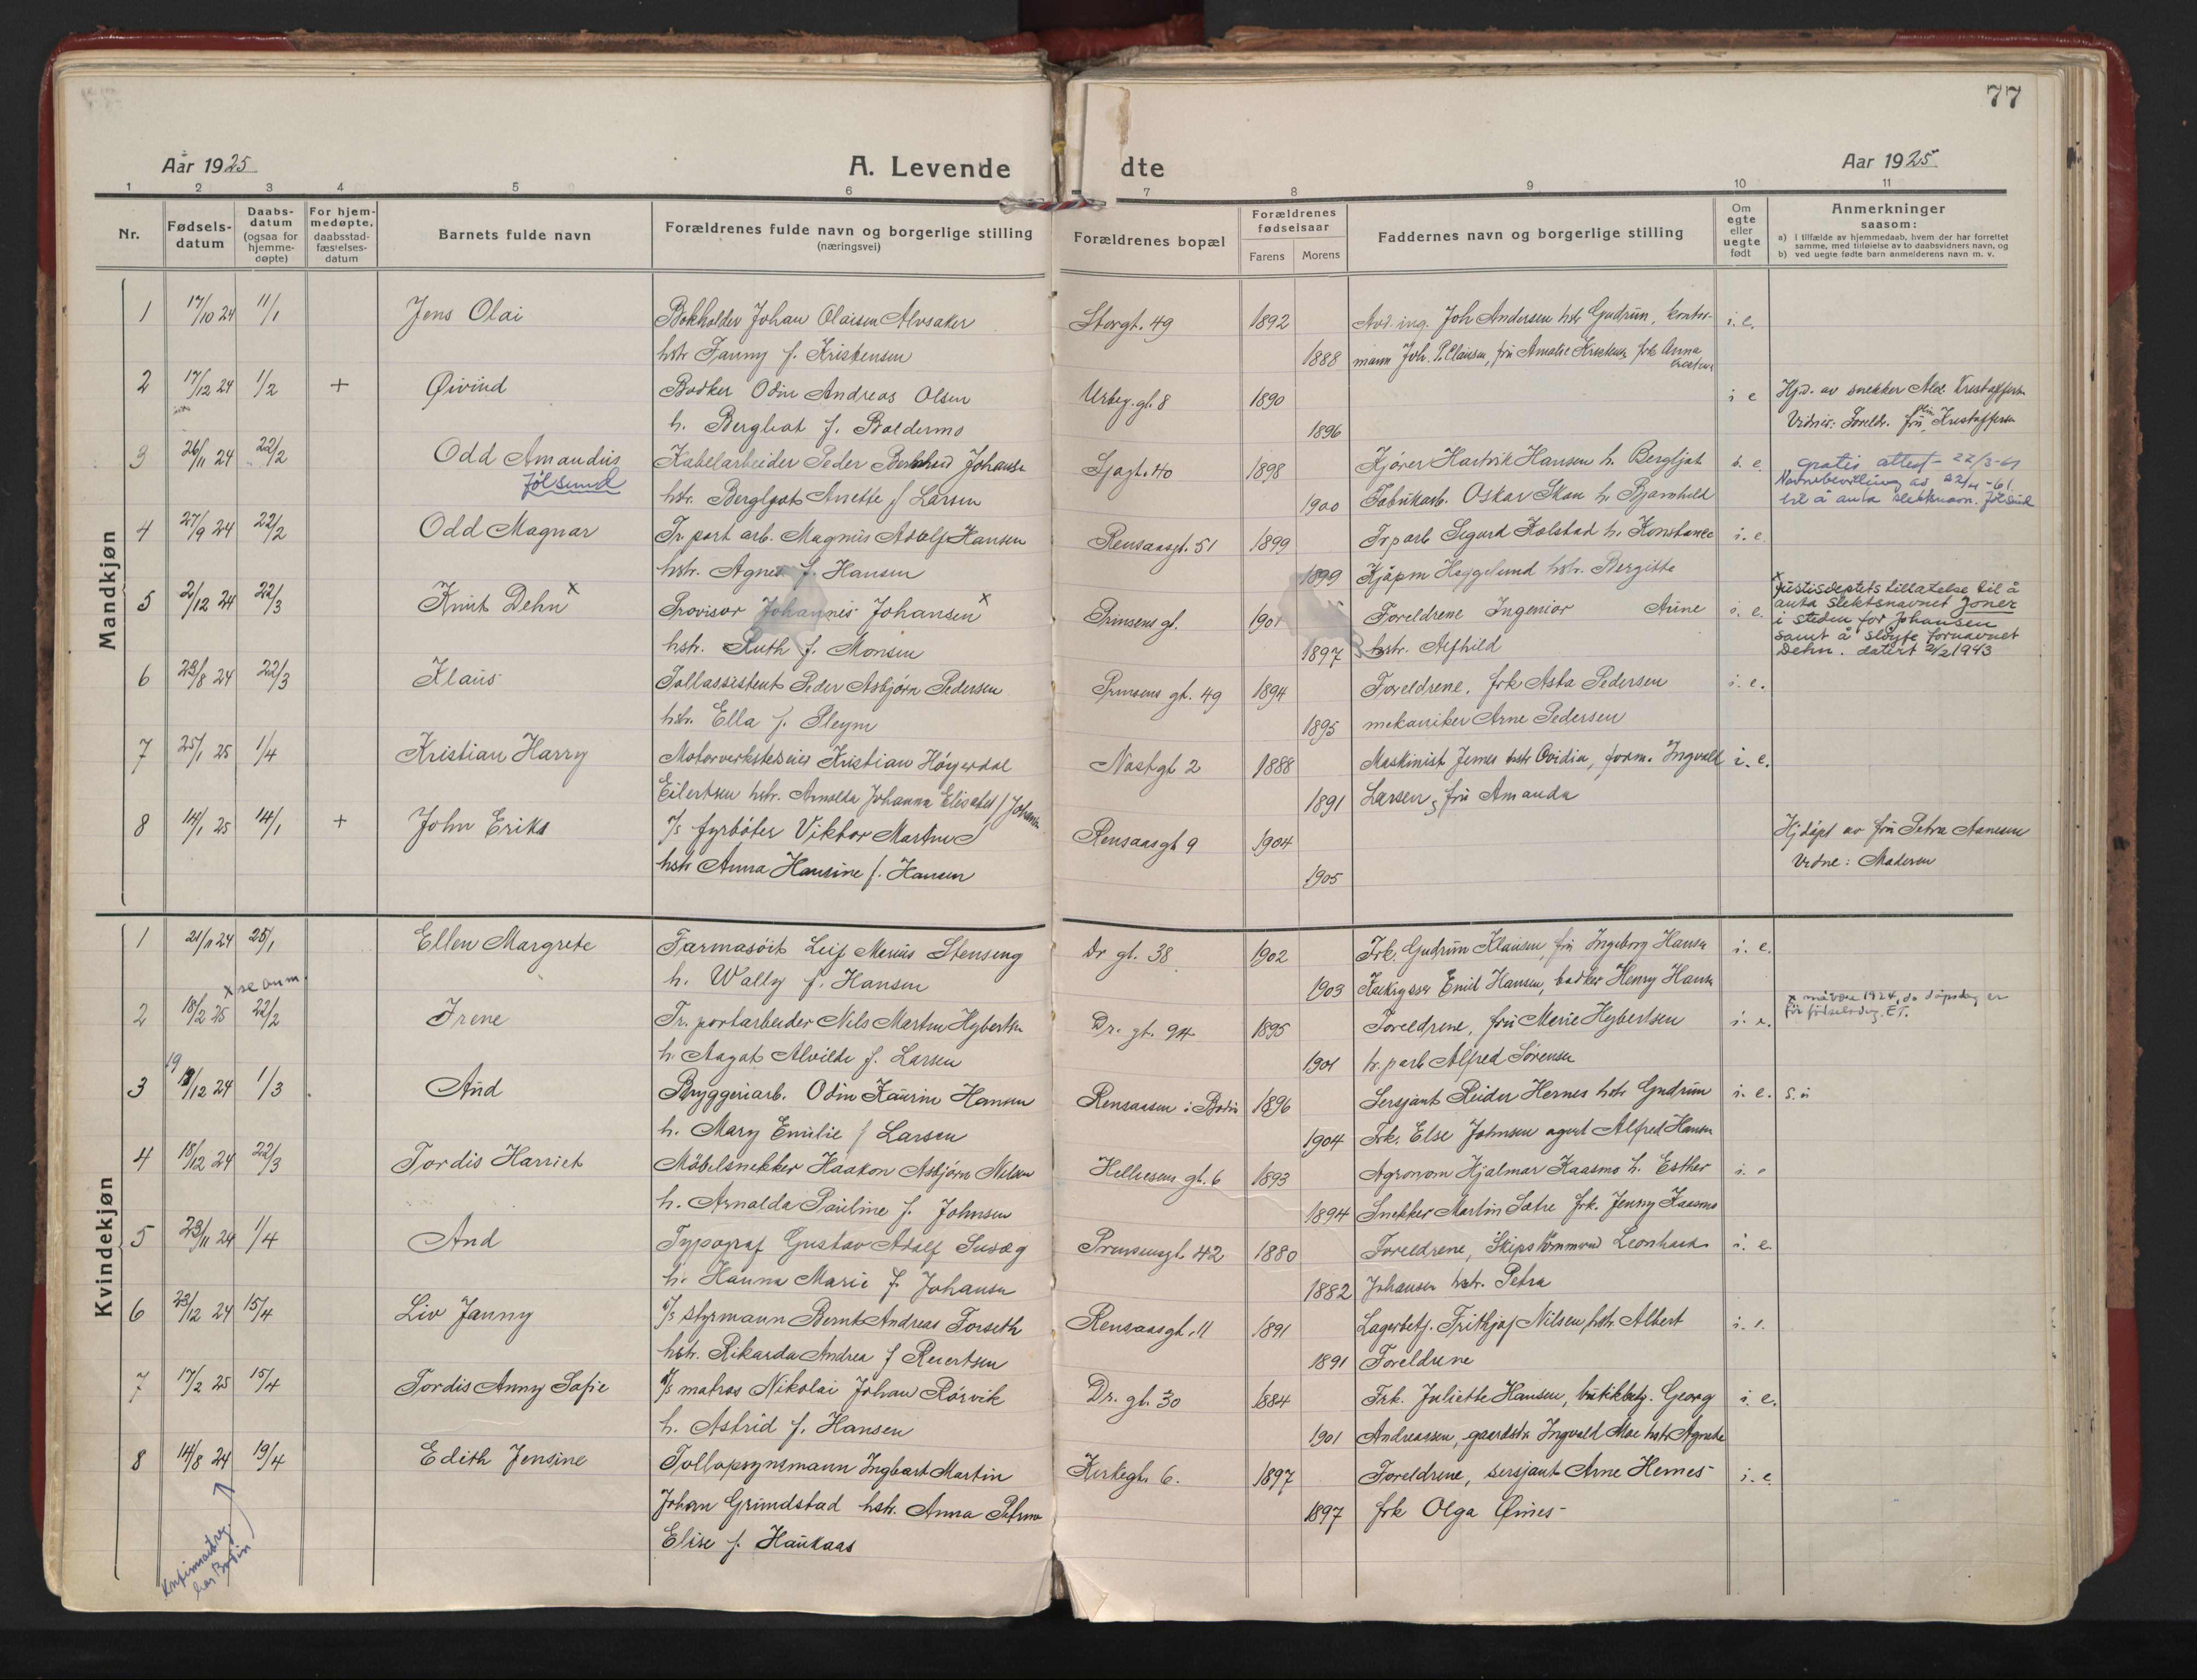 77
Aar 1925
A. Levende
dte
Aar 1925
1 2 3 4 5 6 7 8 9 10 11
Nr.
Fødsels-
datum
Daabs-
datum
(ogsaa for
hjemme-
døpte)
For hjem-
medøpte,
daabsstad-
fæstelses-
datum
Barnets fulde navn
Forældrenes fulde navn og borgerlige stilling
(næringsvei)
Forældrenes bopæl
Forældrenes
fødselsaar
Farens Morens
Faddernes navn og borgerlige stilling
Om
egte
eller
uegte
født
Anmerkninger
saasom:
a) i tilfælde av hjemmedaab, hvem der har forrettet
samme, med tilføielse av to daabsvidners navn, og
b) ved uegte fødte barn anmelderens navn m. v.
Mandkjøn
1 17/10 24 11/1 Jens Olai Bokholder Johan Olaisen Alvsaker Storgt. 49 1892 Joh Andersen hstr Gudrun, kontor- i. e.
hstr Fanny f. Kristensen 1888 mann Joh. P. Clausen, fru Amalie frk Anna
2 17/12 24 1/2 + Øivind Bødker Odin Andreas Olsen 8 1890 i e Hj.d. av snekker Kristoffersen
h. Bergliot f. Boldermo 1896 Vidner: Foreldr. fru Kristoffersen
3 26/11 24 22/2 Odd Amandus Kabelarbeider Peder Johansen Sjøgt. 40 1898 Kjører Hartvik Hansen h. Bergljot i. e. gratis attest - 22/3-61
Jølsund hstr. Bergljot Anette f Larsen 1900 Fabrikarb. Oskar Skau h Bjarnhild Navnebevilling av 22/4-61
til å anta slektsnavn. Jølsund
4 27/9 24 22/2 Odd Magnar Tr. port arb. Magnus Adolf Hansen Rensaasgt. 51 1899 Trp arb Sigurd Kolstad h. Konstance i. e.
hstr. Agnes f. Hansen 1899 Kjøpm Heggelund hstr. Bergitte
5 2/12 24 22/3 Knut Dehn x Provisor Johannes Johansen x Prinsens gt. 1901 Foreldrene Ingeniør Aune i. e. x Justisdeptets tillatelse til å
anta slektsnavnet Joner
i steden for Johansen
samt å sløyfe fornavnet
Dehn. datert 2/2 1943
hstr. Ruth f. Monsen 1897 hstr. Alfhild
6 23/8 24 22/3 Klaus Tollassistent Peder Asbjørn Pedersen Prinsens gt. 49 1894 Foreldrene, frk Asta Pedersen i. e.
hstr. Ella f. Pleym 1895 mekaniker Arne Pedersen
7 25/1 25 1/4 Kristian Harry Motorverkstedeier Kristian Høyerdal 2 1888 Maskinist Jemes hstr Ovidia, form. Ingvald i. e.
Eilertsen hstr. Arnolda Johanna Elisabet f Johansen 1891 Larsen, fru Amanda
8 14/1 25 14/1 + John Eriks fyrbøter Viktor Martinus Rensaasgt 9 1904 Hj døpt av fru Petra Aanesen
hstr Anna Hansine f. Hansen 1905 Vidne: Moderen
Kvindekjøn
1 21/11 24 25/1 Ellen Margrete Farmasøit Leif Stenseng Dr gt. 38 1902 Frk. Gudrun Klausen, fru Ingeborg Hansen i. e.
h. Wally f. Hansen 1903 Emil Hansen, bødker Henry Hansen
x se anm.
2 18/2 25 22/2 Irene Tr. portarbeider Nils Martin Hybertsen Dr. gt. 94 1895 Foreldrene, fru Merie Hybertsen i. e. x må være 1924, da dåpsdag er
før fødselsdag. ET.
h. Aagot Alvilde f. Larsen 1901 tr. parb Alfred Sørensen
3 19/12 24 1/3 Aud Bryggeriarb. Odin Kaurin Hansen Rensaasen i Bodin 1896 Sersjant Reidar Hernes hstr Gudrun i. e.
h. Mary Emilie f Larsen 1904 Frk. Else Johnsen agent Alfred Hansen
4 18/12 24 22/3 Tordis Harriet Møbelsnekker Haakon Asbjørn Nilsen Hellesens gt. 6 1893 Agronom Hjalmar Kaasmo h. Esther i. e
h. Arnalda Pauline f. Johnsen 1894 Snekker Martin Sætre frk. Jenny Kaasmo
5 23/11 24 1/4 Aud Typograf Gustav Adolf Prinsensgt. 42 1880 Foreldrene, Skipstømmerm Leonhard i. e.
h. Hanna Marie f. Johansen 1882 Johansen hstr. Petra
6 23/12 24 15/4 Liv Janny styrmann Bernt Andreas Forseth Rensaasgt. 11 1891 Lagerbetj. Frithjof Nilsen, hstr Albert
hstr. Rikarda Andrea f 1891 Foreldrene
7 17/2 25 15/4 Tordis Anny Sofie matros Nikolai Johan Rørvik Dr. gt. 30 1884 Frk. Juliette Hansen, butikkbetj. Georg i. e.
h. Astrid f. Hansen 1901 Andreassen, Ingvald Moe hstr Agnete
8 14/8 24 19/4 Edith Jensine Tollopsynsmann Ingbart Martin Kirkegt. 6. 1897 Foreldrene, sersjant Arne Hernes i. e
Johan Grimdstad hstr. Anna 1897 frk Olga
Elise f. Haukaas